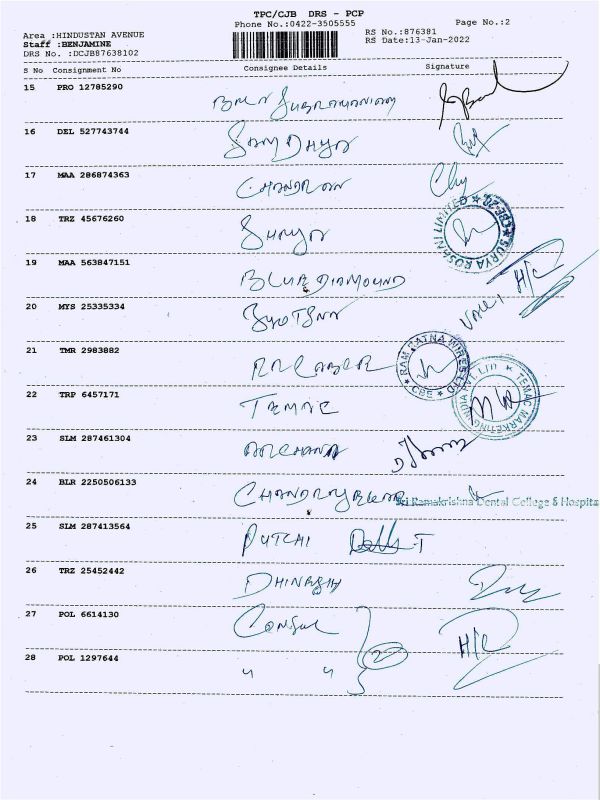 TPC/CJB DRS - PCP
Phone No.:0422-3505555 Page No.:2
Area :HINDUSTAN AVENUE RS No.:876381
Staff :BENJAMINE RS Date:13-Jan-2022
DRS No. :DCJB87638102
S No Consignment No Consignee Details Signature
15 PRO 12785290 Subramaniam
16 DEL 527743744 SANDHYA
17 MAA 286874363 CHANDRAN
18 TRZ 45676260 SURYA ★ SURYA ROSANI LIMITED ★
19 MAA 563847151 BLUE DIAMOUND H/C
20 MYS 25335334 VALLI
21 TMR 2983882 RR CABLE RAM RATNA WIRES LTD CBE
22 TRP 6457171 TEMAC TEMAC MARKETING INDIA PVT LTD ★
23 SLM 287461304 ARCHANA
24 BLR 2250506133 Sri Ramakrishna Dental College & Hospital
25 SLM 287413564
26 TRZ 25452442 DHINESH
27 POL 6614130 Consul H/C
28 POL 1297644 " " 2